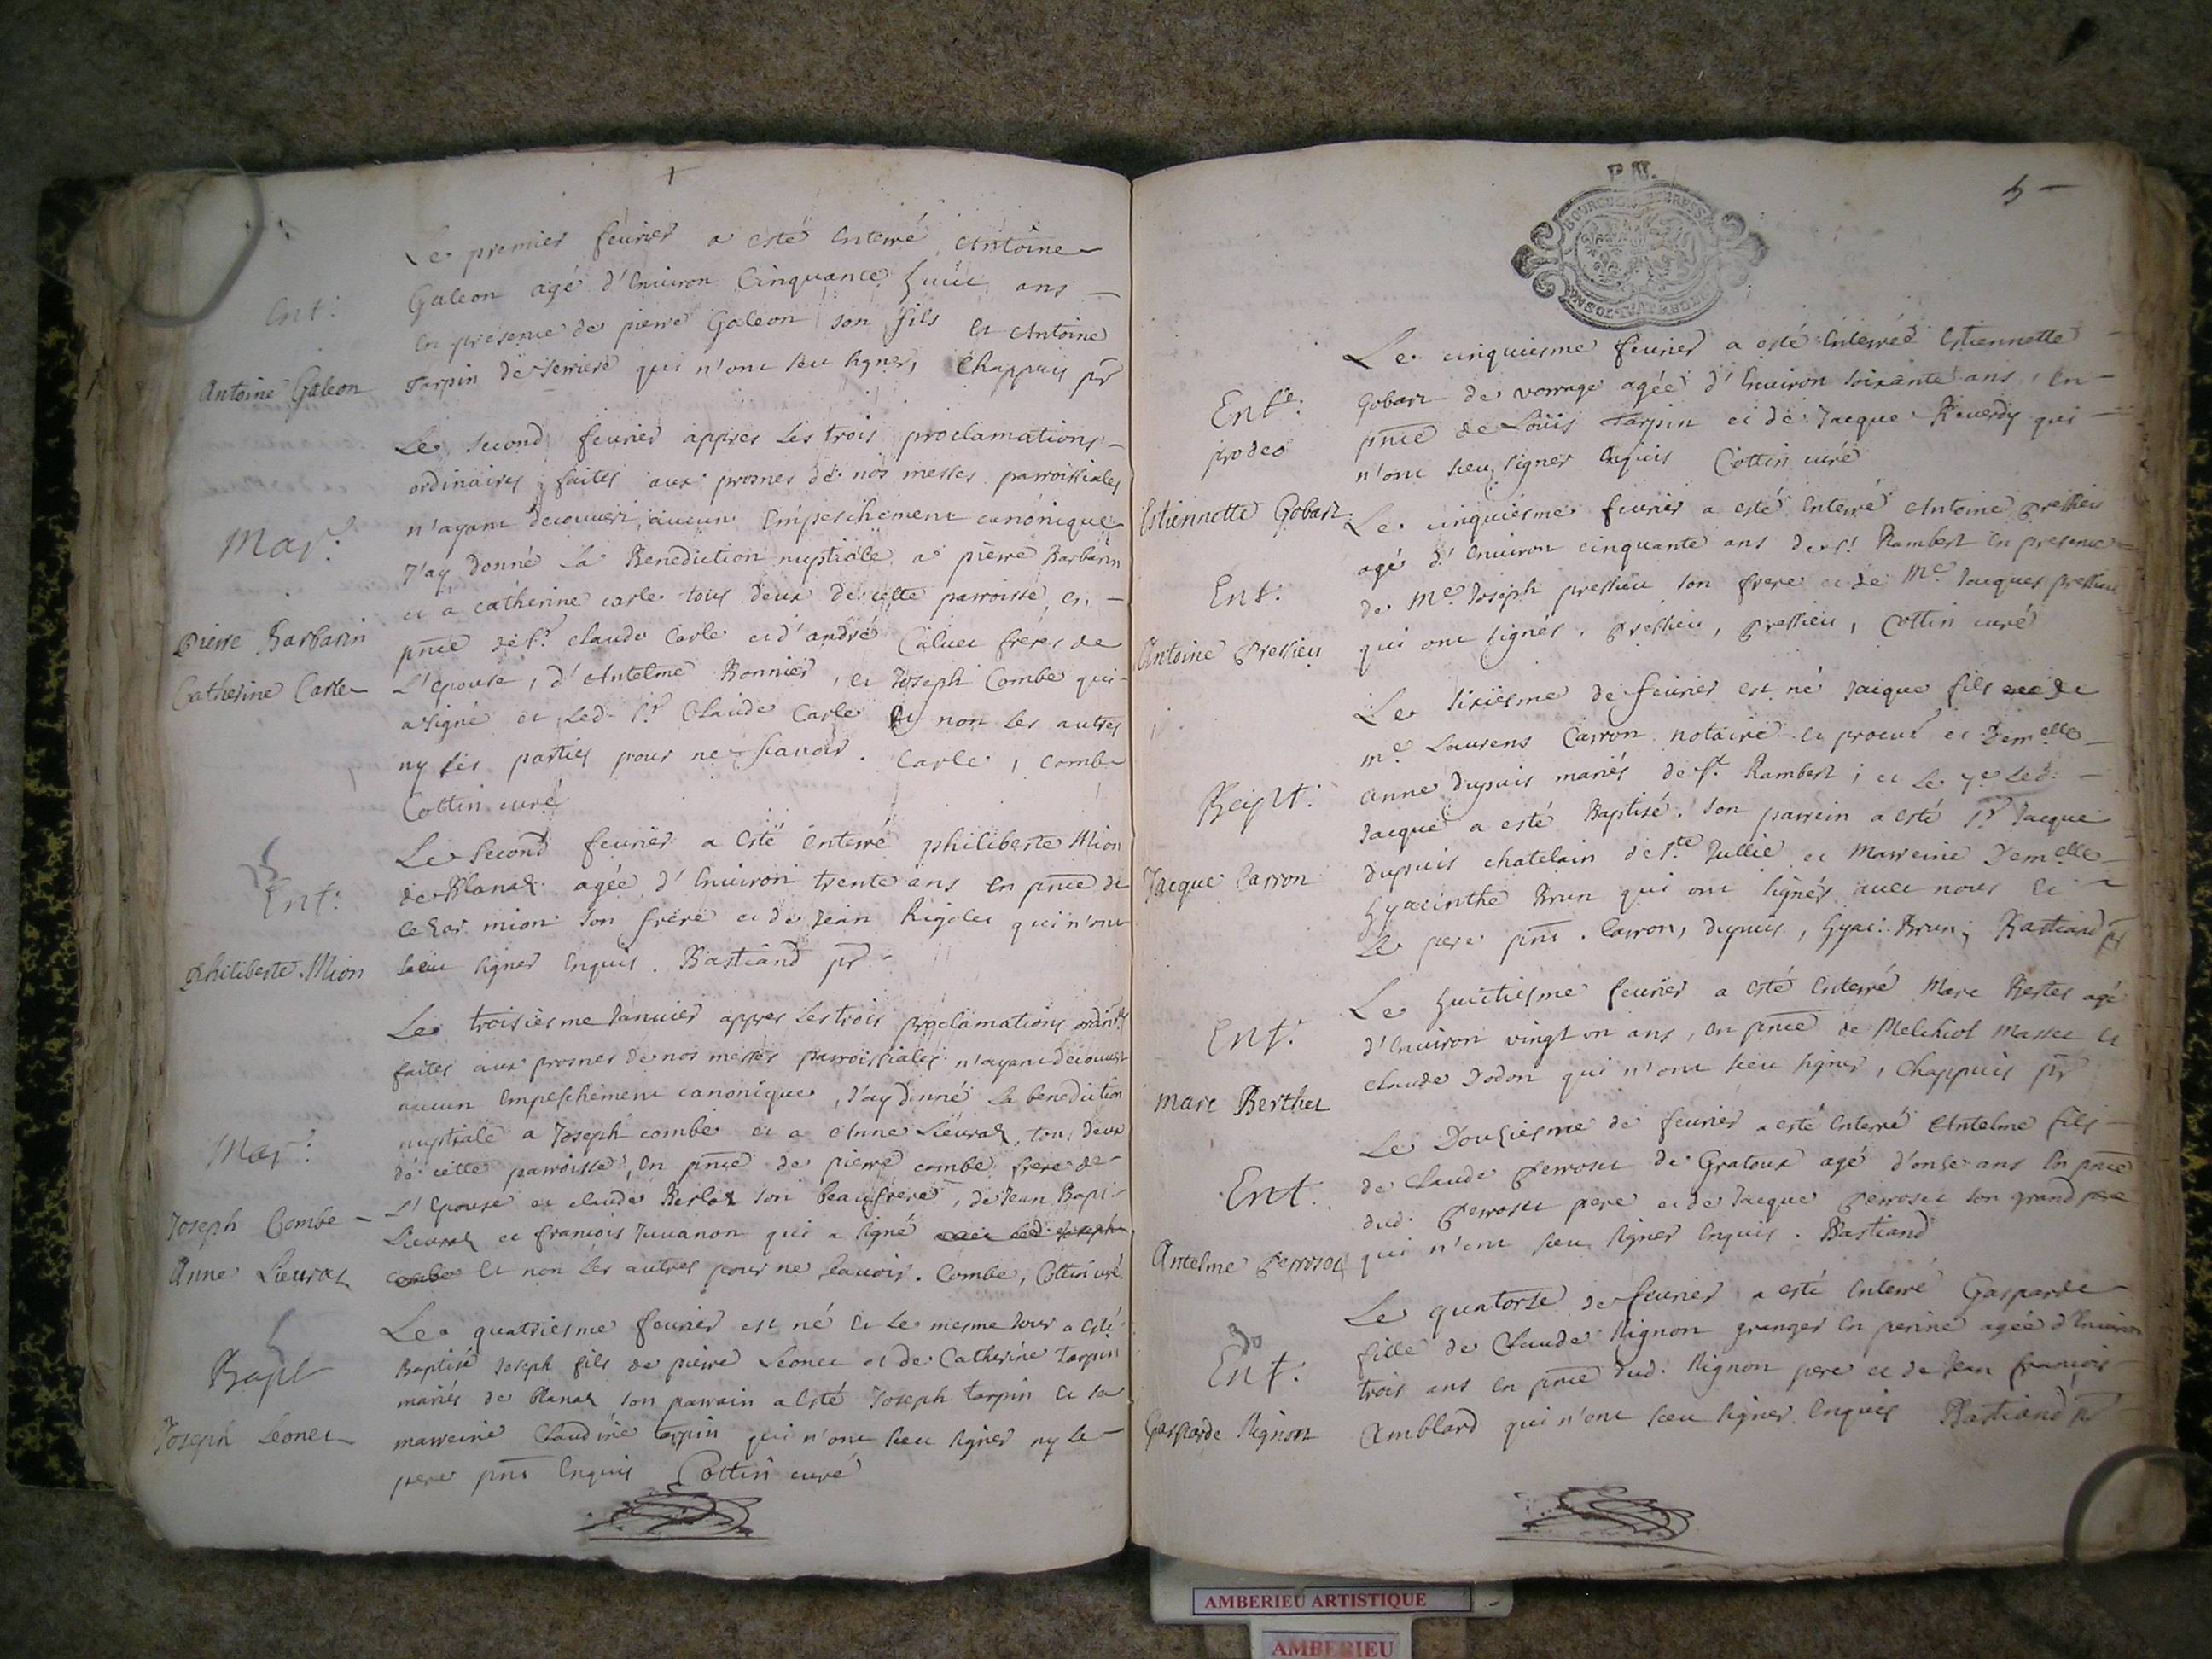 Le premier feurier a esté Enterré Antoine
Galeon agé d'Enuiron Cinquante huit ans
Ent:
En presence de pierre Galeon son fils et Antoine
Antoine Galeon
Tarpin de serriere qui n'ont sceu signer, Chappuis pr
Le second feurier appres les trois proclamations
ordinaires faites aux prosnes de nos messes parroissiales
Mar:
n'ayant decouuert aucun Empeschement canonique
J'ay donné la Benediction nuptiale a pierre Barbarin
et a catherine carle tous deux de cette parroisse, en
Pierre Barbarin
pnce de sr. claude Carle et d'andré Caluet freres de
Catherine Carle
L'epouse, d'Antelme Bonnier, et Joseph Combe qui
a signé et led. sr Claude Carle et non les autres
ny les parties pour ne scauoir. Carle, Combe
Cottin curé
Le second feurier a esté enterré philiberte Mion
de Blanaz agée d'Enuiron trente ans en pnce de
Ent:
mion son frere et de Jean Rigolet qui n'ont
Philiberte Mion
sceu signer enquis. Bastiand pr
Le troisiesme Januier appres les trois proclamations ordinres
faites aux prosnes de nos messes parroissiales n'ayant decouuert
aucun Empeschement canonique, J'ay donné la benediction
Mar:
nuptiale a Joseph combe et a Anne Lieuraz, tous deux
de cette parroisse, en pnce de pierre combe frere de
Joseph Combe
L'Epouse et claude Berloz son beaufrere, de Jean Bapt:
Lieuraz et francois Juuanon qui a signé auec led. Joseph
Anne Lieuraz
combe et non les autres pour ne scauoir. Combe, Cottin curé.
Le quatriesme feurier est né et le mesme Jour a esté
Bapt
Baptisé Joseph fils de pierre Leonet et de Catherine Tarpin
mariés de blanaz son parrain a esté Joseph tarpin et sa
Joseph Leonet
marreine Claudine tarpin qui n'ont sceu signer ny le
pere pnt enquis Cottin curé
5
P.N.
Le cinquiesme feurier a esté Enterrée Estiennette
Ent:
Gobart de vorrage agée d'Enuiron soixante ans, en
pro deo
pnce de Loüis Tarpin et de Jacque Reuerdy qui
n'ont sceu signer enquis Cottin curé
Estiennette Gobart
Le cinquiesme feurier a esté Enterré Antoine Pressieu
agé d'Enuiron cinquante ans de st Rambert en presence
Ent.
de Me. Joseph pressieu son frere et de Me Jacques pressieu
Antoine Pressieu
qui ont signés, Pressieu, Pressieu, Cottin curé
Le sixiesme de feurier est né Jacque fils de
me Laurens Carron notaire et procur et Demelle
Bapt:
anne Dupuis mariés de st. Rambert; et le 7e led.
Jacque a esté Baptisé. son parrein a esté sr Jacque
Jacque Carron
dupuis chatelain de ste Jullie et Marreine Demelle
Hyacinthe Brun qui ont signés auec nous et
le pere pnt. Carron, Dupuis, Hyac: Brun, Bastiand pr
Le huictiesme feurier a esté Enterré Marc Bertet agé
Ent.
d'Enuiron vingt un ans, en pnce de Melchiol Masset et
Marc Berthet
claude Dodon qui n'ont sceu signer, Chappuis pr
Le Douziesme de feurier a esté enterré Antelme fils
Ent.
de Claude Perroset de Gratoux agé d'onze ans En pnce
dud. Perroset pere et de Jacque Perroset son grand pere
Antelme Perroset
qui n'ont sceu signer enquis. Bastiand
Le quatorze de feurier a esté enterré Gasparde
30
fille de Claude Rignon granger en perine agée d'Enuiron
Ent.
trois ans en pnce dud. Rignon pere et de Jean françois
Gasparde Rignon
Amblard qui n'ont sceu signer Enquis Bastiand pr
AMBERIEU ARTISTIQUE
AMBERIEU